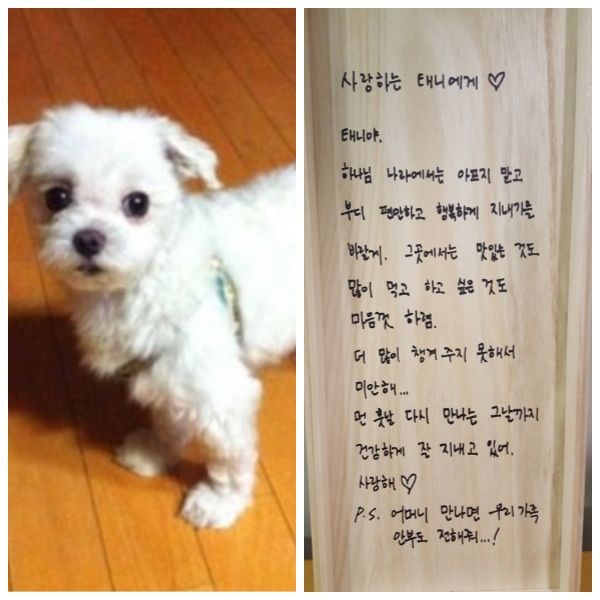 사랑하는 태니에게 ♡
태니야.
하나님 나라에서는 아프지 말고
부디 편안하고 행복하게 지내기를
바랄게. 그곳에서는 맛있는 것도
많이 먹고 하고 싶은 것도
마음껏 하렴.
더 많이 챙겨 주지 못해서
미안해...
먼 훗날 다시 만나는 그날까지
건강하게 잘 지내고 있어.
사랑해 ♡
P.S. 어머니 만나면 우리 가족
안부도 전해줘...!